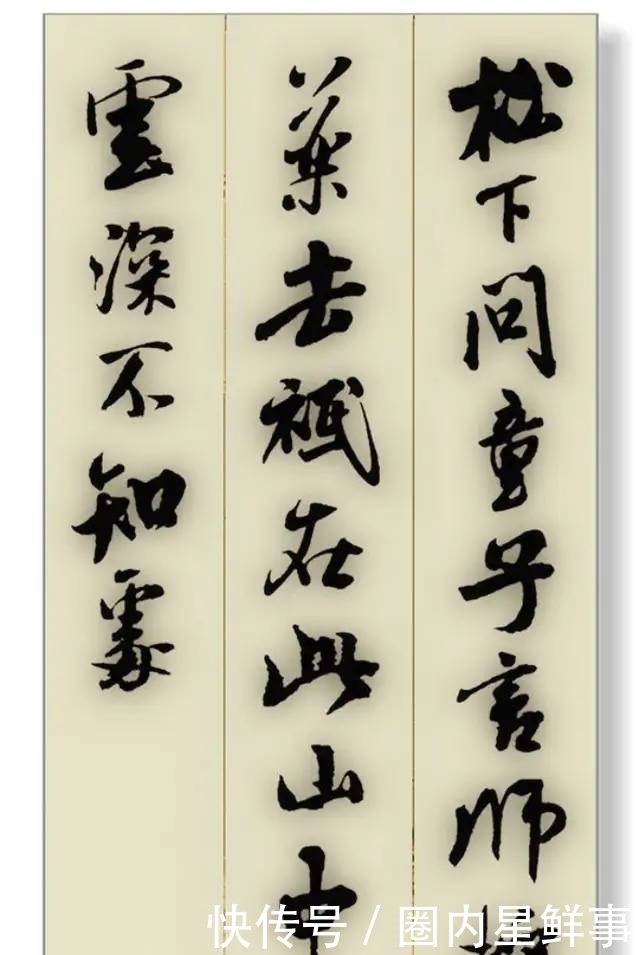 松下問童子言師
藥去祇在此山中
雲深不知處
快传号 / 圈内星鲜事